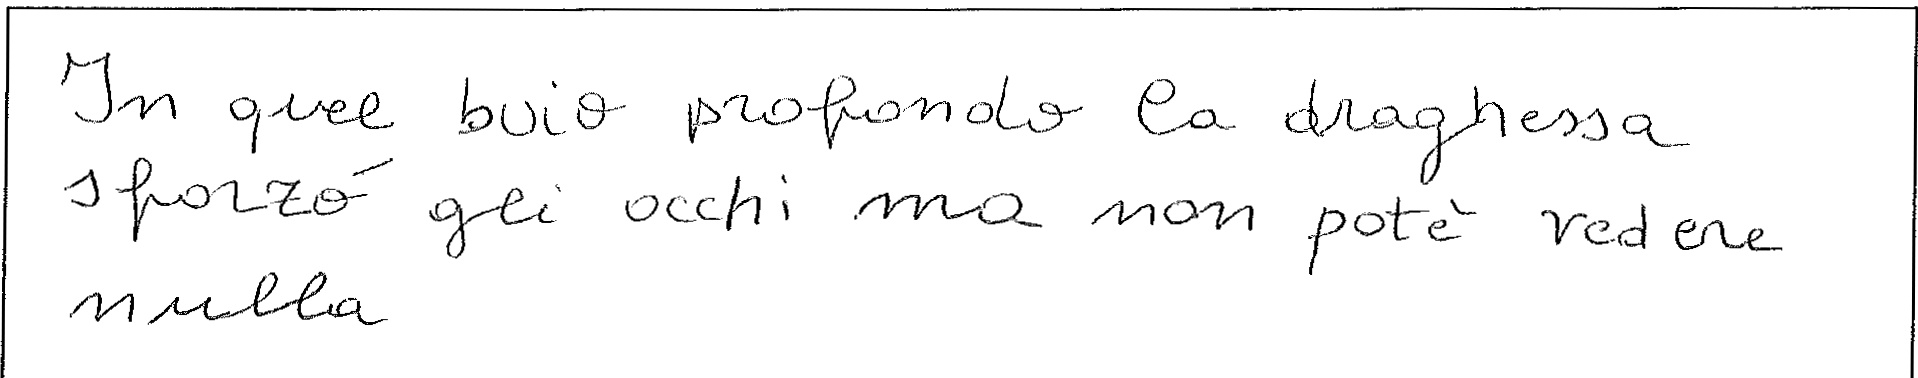 In quel buio profondo la draghessa
sforzó gli occhi ma non potè vedere
nulla